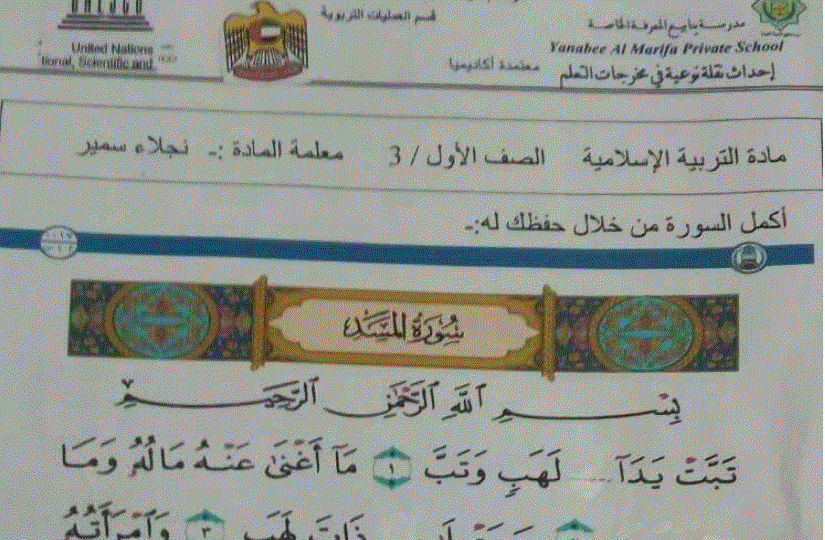 قسم العمليات التربوية
مدرسة ينابيع المعرفة الخاصة
United Nations
Yanabee Al Marifa Private School
tional, Scientific and
معتمدة أكاديميا
إحداث نقلة نوعية في مخرجات التعلم
مادة التربية الإسلامية الصف الأول / 3 معلمة المادة :- نجلاء سمير
أكمل السورة من خلال حفظك له:-
سُورَةُ المَسَد
بِسْمِ ٱللَّهِ ٱلرَّحْمَٰنِ ٱلرَّحِيمِ
تَبَّتْ يَدَآ ..... لَهَبٍ وَتَبَّ ١ مَآ أَغْنَىٰ عَنْهُ مَالُهُۥ وَمَا
ذَاتَ لَهَبٍ ٣ وَٱمْرَأَتُهُۥ